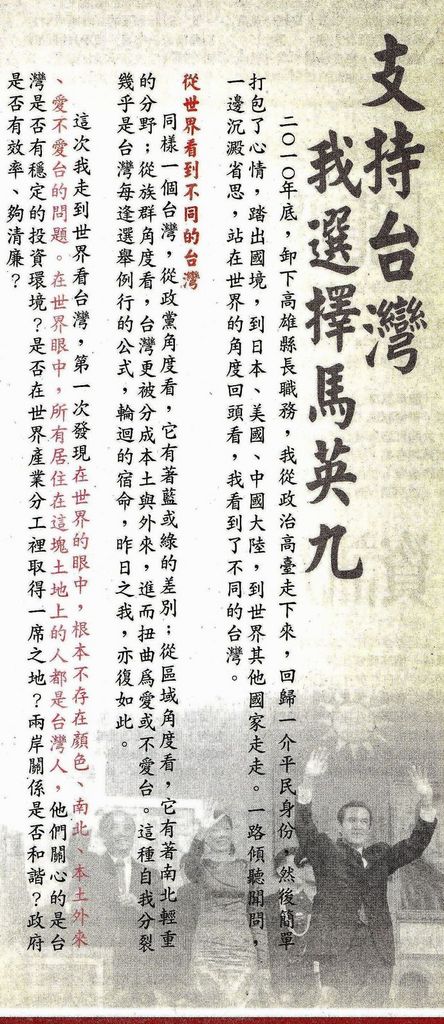 支持台灣
我選擇馬英九
二〇一〇年底，卸下高雄縣長職務，我從政治高臺走下來，回歸一介平民身份，然後簡單
打包了心情，踏出國境，到日本、美國、中國大陸，到世界其他國家走走。一路傾聽聞問，
一邊沉澱省思，站在世界的角度回頭看，我看到了不同的台灣。
從世界看到不同的台灣
同樣一個台灣，從政黨角度看，它有著藍或綠的差別；從區域角度看，它有著南北輕重
的分野；從族群角度看，台灣更被分成本土與外來，進而扭曲為愛或不愛台。這種自我分裂
幾乎是台灣每逢選舉例行的公式，輪迴的宿命，昨日之我，亦復如此。
這次我走到世界看台灣，第一次發現在世界的眼中，根本不存在顏色、南北、本土外來
、愛不愛台的問題。在世界眼中，所有居住在這塊土地上的人都是台灣人，他們關心的是台
灣是否有穩定的投資環境？是否在世界產業分工裡取得一席之地？兩岸關係是否和諧？政府
是否有效率、夠清廉？